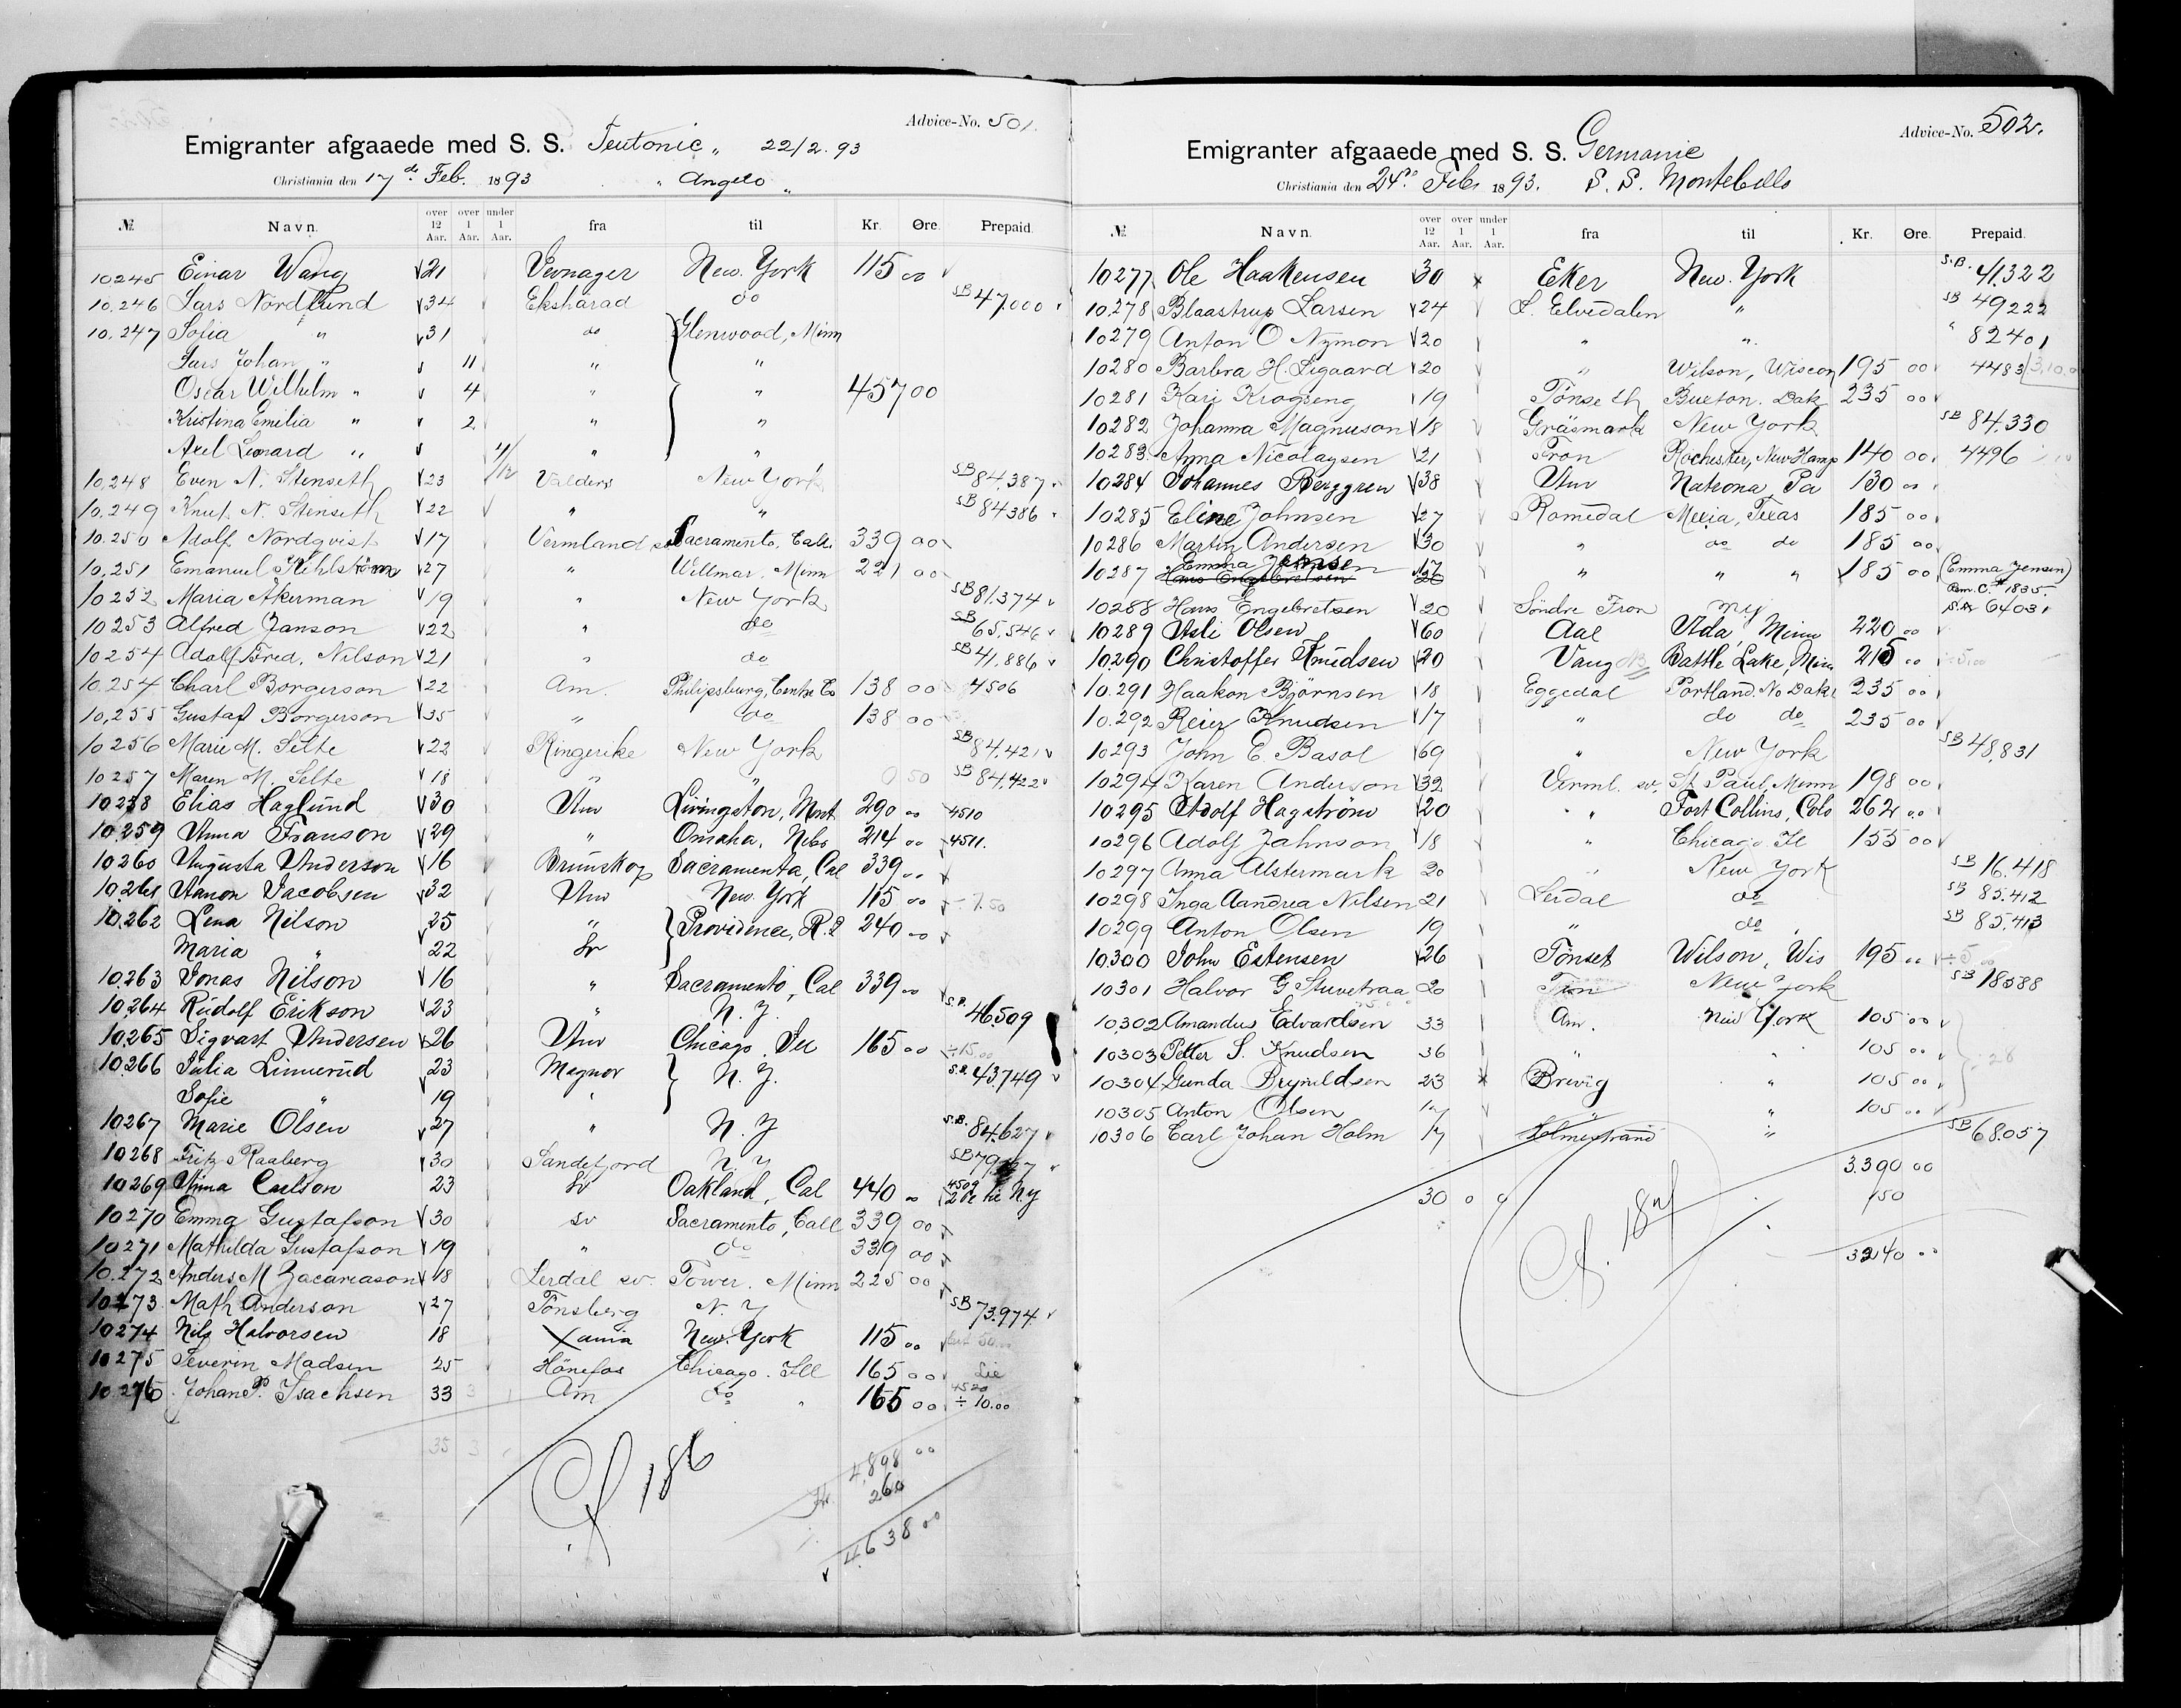 Advice-No. 501.
Emigranter afgaaede med S. S. Teutonic „ 22/2. 93
Christiania den 17de Feb. 1893 „ Angelo „
№ Navn. over 12 Aar. over 1 Aar. under 1 Aar. fra til Kr. Øre. Prepaid.
10245 Einar Wang 21 New York 115 00
10.246 Lars Nordlund 34 Eksharad do SB 47.000
10.247 Sofia „ 31 do Glenwood, Minn
Lars Johan „ 11 „ „
Oscar Wilhelm „ 4 „ „ 457 00
Kristina Emilia „ 2 „ „
Axel Leonard „ 11/12 „ „
10,248 Even N. Stenseth 23 Valders New York SB 84,387
10.249 Knut N. Stenseth 22 „ „ SB 84386
10.250 Adolf Nordqvist 17 Vermland sv Sacramento, Call. 339 00
10,251 Emanuel Kihlström 27 „ Willmar, Minn 221 00
10252 Maria Akerman 19 „ New York SB 81.374
10253 Alfred Janson 22 „ do SB 65,546
10254 Adolf Fred. Nilson 21 „ do SB 41,886
10.254 Charl Borgerson 22 Am. Philipsburg, Centre Co 138 00 4506
10,255 Gustaf Borgerson 35 „ do 138 00
10256 Marie M. Selte 22 Ringerike New York SB 84,421
10257 Maren M. Selte 18 „ „ 0 50 SB 84,422
10258 Elias Haglund 30 Am Livingston, Mont 290 00 4510
10259 Anna Franson 29 „ Omaha, Nebs 214 00 4511.
10260 Augusta Anderson 16 Brunskog Sacramento, Cal 339 00
10261 Aanon Jacobsen 32 Am New York 115 00 ÷ 7.50
10262 Lena Nilson 25 „ Providence, R.I 240 00
Maria „ 22 Sv
10263 Jonas Nilson 16 „ Sacramento, Cal 339 00
10264 Rudolf Erikson 23 „ N. Y. S.B. 46509
10265 Sigvart Andersen 26 Am Chicago, Ill 165 00 ÷ 15.00
10266 Julia Linnerud 23 Magnor N. Y. S.B. 43749
Sofie „ 19 „
10267 Marie Olsen 27 „ N. Y S.B. 84627
10268 Fritz Raaberg 30 Sandefjord N. Y SB
10269 Anna Carlson 23 Sv Oakland, Cal 440 00 4509
10270 Emma Gustafson 30 sv Sacramento, Call 339 00
10271 Mathilda Gustafson 19 „ do 339 00
10.272 Anders M Zacariason 18 Lerdal sv. Tower. Minn 225 00
10273 Math Anderson 27 Tönsberg N. Y SB 73.974
10274 Nils Halvorsen 18 Xania New York 115 00
10275 Severin Madsen 25 Hönefos Chicago. Ill 165 00 Lie
10276 Johan P. Isachsen 33 Am do „ 165 00 4520 ÷ 10.00
35 3
186
4,898 00
260
4.638 00
Advice-No. 502.
Emigranter afgaaede med S. S. Germanic
Christiania den 24de Feb 1893. S. S. Montebello
№ Navn. over 12 Aar. over 1 Aar. under 1 Aar. fra til Kr. Øre. Prepaid.
10277 Ole Haakensen 30 Eker New York S.B. 41322
10.278 Blaastrup Larsen 24 L. Elvedalen „ SB 49222
10279 Anton O Nymon 20 „ „ „ 82401
10280 Barbra H. Sigaard 20 „ Wilson, Wiscon 195 00 4483
10281 Kari Krogseng 19 Tönseth Buxton. Dak 235 00
10282 Johanna Magnuson 18 Gräsmark New York SB 84.330
10283 Anna Nicolaysen 21 Fron Rochester, New Hamp 140 00 4496
10284 Johannes Berggren 38 Am Natrona Pa 130 00
10285 Eline Johnsen 27 Romedal Mexia, Texas 185 00
10286 Martin Andersen 30 „ do do 185 00
10287 Emma Jensen „ „ „ 185 00 (Emma Jensen)
10288 Hans Engebretsen 20 Söndre Fron NY S.A 64031
10289 Asli Olsen 60 Aal Ada, Minn 220 00
10290 Christoffer Knudsen 20 Vang Battle Lake, Min 215 00
10.291 Haakon Bjørnsen 18 Eggedal Portland. No Dak 235 00
10.292 Reier Knudsen 17 „ do do 235 00
10293 John E. Basol 69 „ New York SB 48,831
10294 Karen Anderson 32 Verml. sv. St Paul, Minn 198 00
10295 Adolf Hagström 20 „ Fort Collins, Colo 262 00
10296 Adolf Jahnson 18 „ Chicago Il 155 00
10297 Anna Alstermark 20 „ New York SB 16.418
10298 Inga Aandrea Nilsen 21 Lerdal do SB 85.412
10299 Anton Olsen 19 „ do SB 85.413
10300 John Estensen 26 Tönset Wilson, Wis 195 00 ÷ 5 00
10301 Halvor G. Stuvetraa 20 Fron New York SB 18588
10,302 Amandus Edvardsen 33 Am. New York 105 00
10303 Petter S. Knudsen 36 „ „ 105 00
10304 Gunda Brynildsen 23 Brevig „ 105 00
10305 Anton Olsen 17 „ „ 105 00
10306 Carl Johan Holm 17 Holmestrand „ SB 68.057
3.390 00
30 0 0 150
3240 00